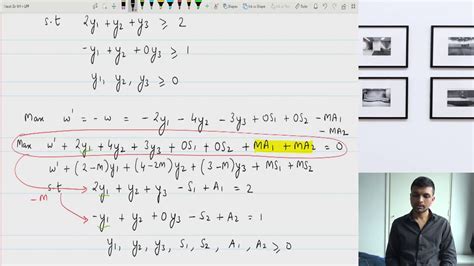 s.t 2y₁ + y₂ + y₃ ⩾ 2
-y₁ + y₂ + 0y₃ ⩾ 1
y₁, y₂, y₃ ⩾ 0
Max w' = -w = -2y₁ - 4y₂ - 3y₃ + 0S₁ + 0S₂ - MA₁
- MA₂
Max w' + 2y₁ + 4y₂ + 3y₃ + 0S₁ + 0S₂ + MA₁ + MA₂ = 0
w' + (2-M)y₁ + (4-2M)y₂ + (3-M)y₃ + MS₁ + MS₂
s.t
-M 2y₁ + y₂ + y₃ - S₁ + A₁ = 2
-y₁ + y₂ + 0y₃ - S₂ + A₂ = 1
y₁, y₂, y₃, S₁, S₂, A₁, A₂ ⩾ 0